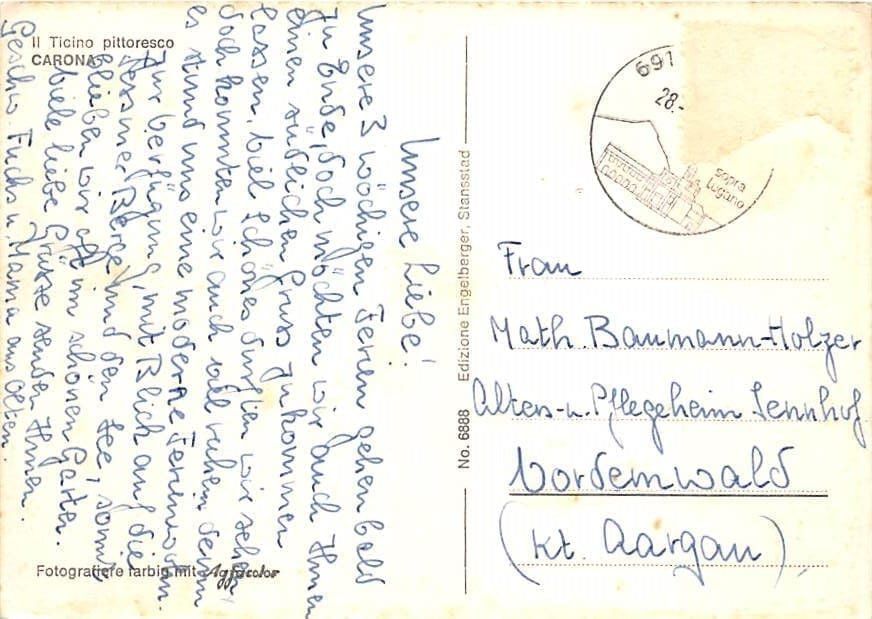 Il Ticino pittoresco
CARONA
Unsere Liebe!
Unsere 3 wöchigen Ferien gehen bald
zu Ende, doch möchten wir auch Ihnen
einen südlichen Gruss zukommen
lassen. Viel Schönes durften wir sehen
doch konnten wir auch viel ruhen denn
es stund uns eine moderne Ferienwohn.
zur Verfügung, mit Blick auf die
Tessiner Berge und den See, somit
blieben wir oft im schönen Garten.
Viele liebe Grüsse senden Ihnen
Geschw. Fuchs u. Mama aus Olten.
Fotografiere farbig mit Agfacolor
No. 6888 Edizione Engelberger, Stansstad
691
28.-
sopra
Lugano
Frau
Math. Baumann-Holzer
Alters- u. Pflegeheim Sennhof
Vordemwald
(Kt. Aargau)